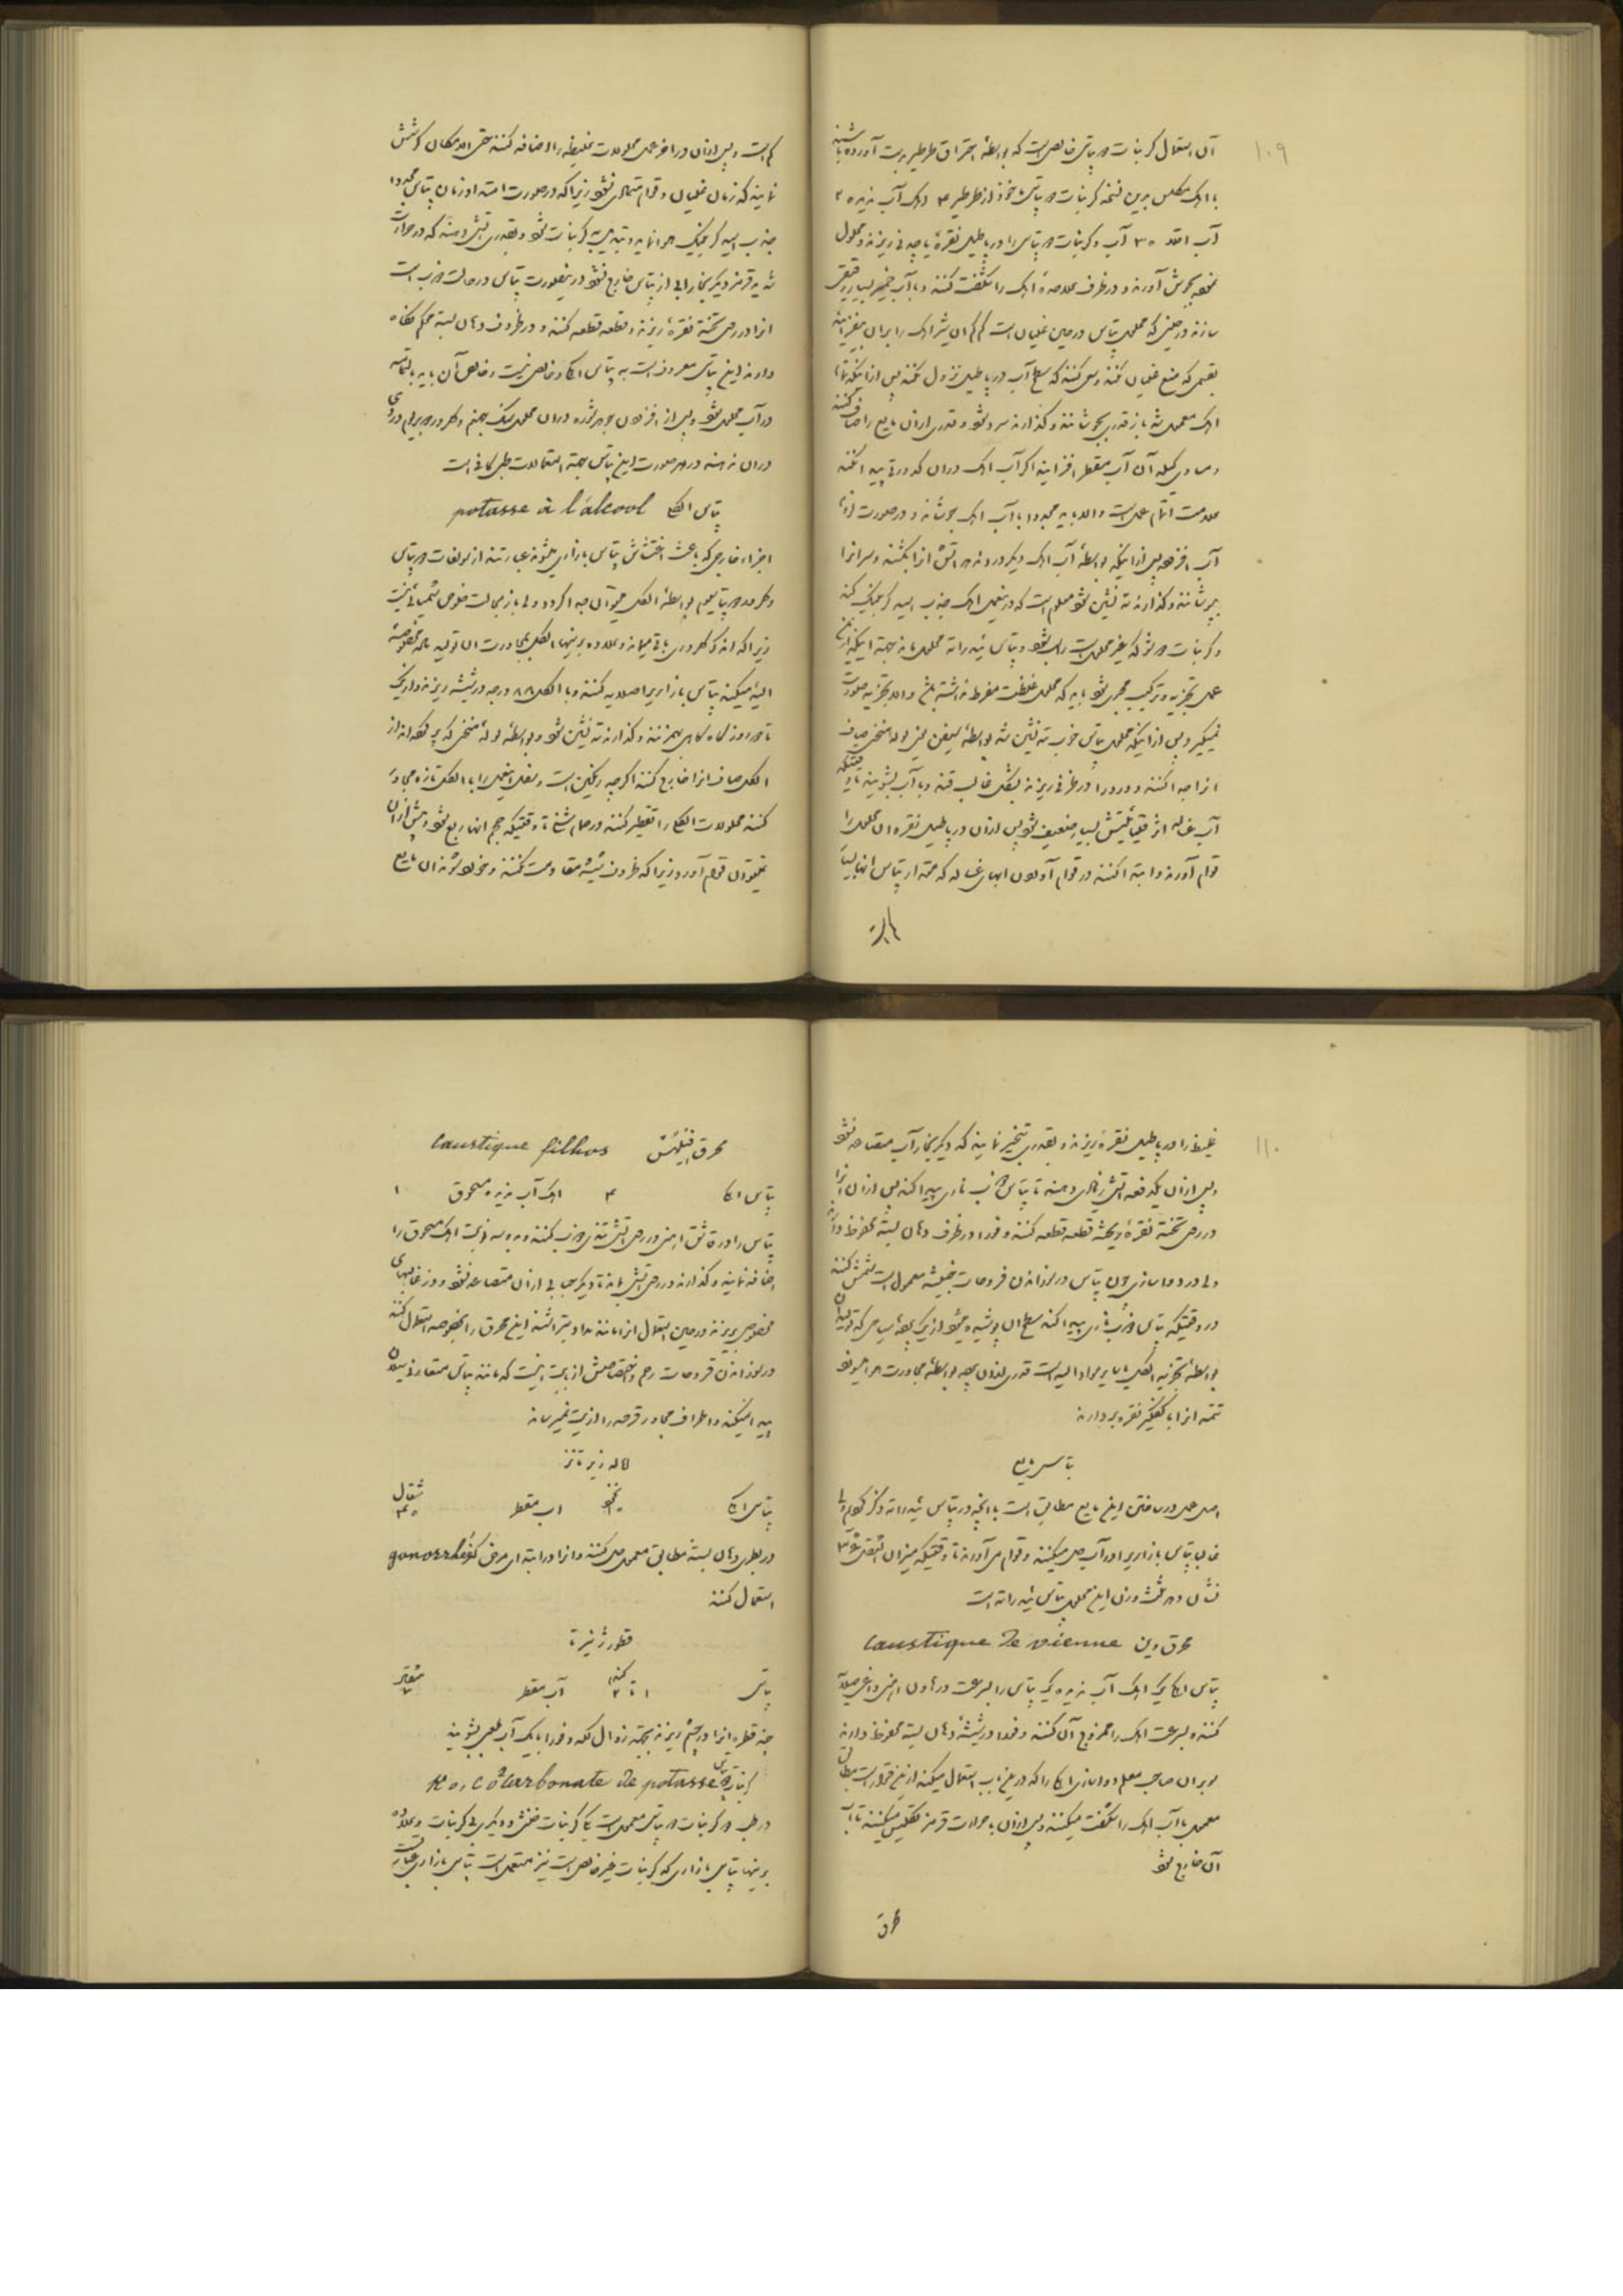 ۱۰۹
آن استعمال کربنات دو پتاس خالص است که بواسطهٔ احتراق طرطیر بدست آورده باشند
با آهک مکلس بدین نسخه کربنات دو پتاس مأخوذ از طرطیر ۳ آهک آب ندیده ۲
آب اقلاً ۳۰ آب و کربنات دو پتاس را در پاطیل نقرهٔ یا چدنی ریزند و محلول
بجوش آورند و در ظرف علاحدهٔ آهک را شگفت کنند و با آب خمیر بسیار رقیقی
سازند در حینی که محلول پتاس در حین غلیان است کم کم آن شیر آهک را بر آن بیفزایند
بقسمی که منع غلیان نکند و سعی کنند که سطح آب در پاطیل نزول نکند پس از آنکه تمام
آهک مستعمل شد باز قدری بجوشانند و گذارند سرد شود و قدری از آن مایع را صاف کنند
و مساوی کیله آن آب مقطر افزایند اگر آب آهک در آن کدورتی پیدا نکند
علامت اتمام عمل است والا باید مجدداً با آب آهک بجوشانند و در صورت لزوم
آب افزوده پس از آنکه بواسطهٔ آب آهک دیگر دردند هد آتش از آن بکشند و سر آنرا
بپوشانند و گذارند ته نشین شود معلوم است که در این عمل آهک جذب اسید کربنیک کند
و کربنات دوشو که غیر محلول است راسب شود و پتاس ئیدراته محلول ماند بجهة اینکه این
عمل تجزیه و ترکیب مجری شود باید که محلول غلظت مفرط نداشته باشد والا تجزیه صورت
نمیگیرد پس از اینکه محلول پتاس خوب ته نشین شد بواسطهٔ سیفن یعنی لوله منحنی صاف
آنرا جدا کنند و درد را در ظرفی ریزند بشکل غالب قند و با آب بشویند تا وقتیکه
آب غساله اثر قلیائیتش بسیار ضعیف شود پس از آن در پاطیل نقره آن محلول را
بقوام آورند و ابتدا کنند در قوام آوردن آبهای غساله که مقدار پتاس آنها بسیار
کم است و پس از آن در آخر عمل محلولات غلیظه را اضافه کنند حتی الامکان کوشش
نمایند که زمان غلیان و قوام متمادی نشود زیرا که در صورت امتداد زمان پتاس مجدداً
جذب اسید کربنیک هوا نماید و تبدیل به کربنات شود و بقدری آتش دهند که در حرارت
شدید قرمز دیگر بخار آبی از پتاس خارج نشود در اینصورت پتاس در حالت ذوب است
آنرا در روی تختهٔ نقره ریزند و قطعه قطعه کنند و در ظروف دهان بسته محکم نگاه
دارند این پتاس معروف است به پتاس آکا و خالص نیست و خالص آن باید بالتمامه
در آب محلول شود و پس از افزودن جوهر شوره در آن محلول نمک جهنم و کلرور باریم دردی
در آن ندهند در هر صورت این پتاس بجهة استعمالات طبی کافی است
پتاس الکلی potasse à l'alcool
اجزاء خارجی که باعث اغتشاش پتاس بازاری میشوند عبارتند از سولفات دو پتاس
و کلرور دو پتاسیم بواسطهٔ الکل میتوان جدا کرد ولی باز بحالت خلوص شیمیائی نیست
زیرا که اندک کلروری باقی میماند و علاوه بر اینها الکل بمجاورت آن تولید مادهٔ مخصوصهٔ
الیه میکند پتاس بازاری را صلایه کنند و با الکل ۸۸ درجه در شیشه ریزند و تاریک
تا دو روز گاه گاهی بهم زنند و گذارند ته نشین شود و بواسطهٔ لولهٔ منحنی که پر نکرده اند از
الکل صاف آنرا خارج کنند اگرچه رنگین است و نقل این عمل را با الکل تازه مجاورت
کنند محلولات الکلی را تقطیر کنند در حمام شن تا وقتیکه حجم آنها ربع شود و بیش از آن
نمیتوان بقوام آورد زیرا که ظروف شیشه مقاومت نکنند و خورده شوند آن مایع
۱۱۰
غلیظ را در پاطیل نقره ریزند و بقدری تبخیر نمایند که دیگر بخار آب متصاعد نشود
و پس از آن یکدفعه آتش زیادی دهند تا پتاس ذوب ناری پیدا کند پس از آن آنرا
در روی تختهٔ نقره ریخته قطعه قطعه کنند و فوراً در ظرف دهان بسته محفوظ دارند
ولی در دواسازی چون پتاس در سوزاندن قروحات خبیثه معمول است شمش کنند
در وقتیکه پتاس ذوب ناری پیدا کند سطح آن پوشیده میشود از یک پوسهٔ سیاهی که تولید آن
بواسطهٔ تجزیه الکل با سایر مواد الیه است قدری از آن بجهد بواسطهٔ مجاورت هوا میسوزد
تتمه آنرا با کفگیر نقره بردارند
پتاس مایع
اصل عمل در ساختن این مایع مطابق است با آنچه در پتاس ئیدراته ذکر کردیم ولی
غالباً پتاس بازاری را در آب حل میکنند و بقوام می آورند تا وقتیکه میزان الثقل ۳۶
نشان دهد ثلث وزن این محلول پتاس ئیدراته است
محرق وین Caustique de vienne
پتاس آکا یک آهک آب ندیده یک پتاس را بسرعت در هاون آهنی داغی صلایه
کنند و بسرعت آهک را ممزوج آن کنند و فوراً در شیشهٔ دهان بسته محفوظ دارند
سوبران صاحب معلم دواسازی آکا را که در این باب استعمال میکند از این قرار است مطابق
معمول با آب آهک را شگفت میکنند و پس از آن با حرارت قرمز تکلیس میکنند تا آب
آن خارج شود
محرق
محرق فیلئس Caustique filhos
پتاس آکا ۳ آهک آب ندیده مسحوق ۱
پتاس را در قاشق آهنی در روی آتش تندی ذوب کنند و بدو سه دفعه آهک مسحوق را
اضافه نمایند و گذارند در روی آتش بماند تا دیگر حبابی از آن متصاعد نشود و در غالبهای
مخصوص بریزند در حین استعمال آنرا مانند مداد بتراشند این محرق را بخصوصه استعمال کنند
در سوزاندن قروحات رحم و اختصاصش از این بابت اینست که مانند پتاس متعارفی سیلان
پیدا نمیکند و اطراف مجاور قرحه را اذیت نمیرساند
پتاس آکا نخود ۱ آب مقطر مثقال ۳۰
در بطری دهان بسته مطابق معمول حل کنند و آنرا در ابتدای مرض گنوره gonorrhée
استعمال کنند
پتاس گندم ۱ تا ۲ آب مقطر مثقال
چند قطره آنرا در چشم ریزند بجهة زوال لکه و فوراً با یک آب لعابی بشویند
کربنات دو پتاس Ko, Co² Carbonate de potasse
در طب دو کربنات دو پتاس معمول است یکی کربنات خنثی و دیگری بی کربنات و علاوه
بر اینها پتاس بازاری که کربنات غیر خالص است نیز مستعمل است پتاس بازاری عبارتست